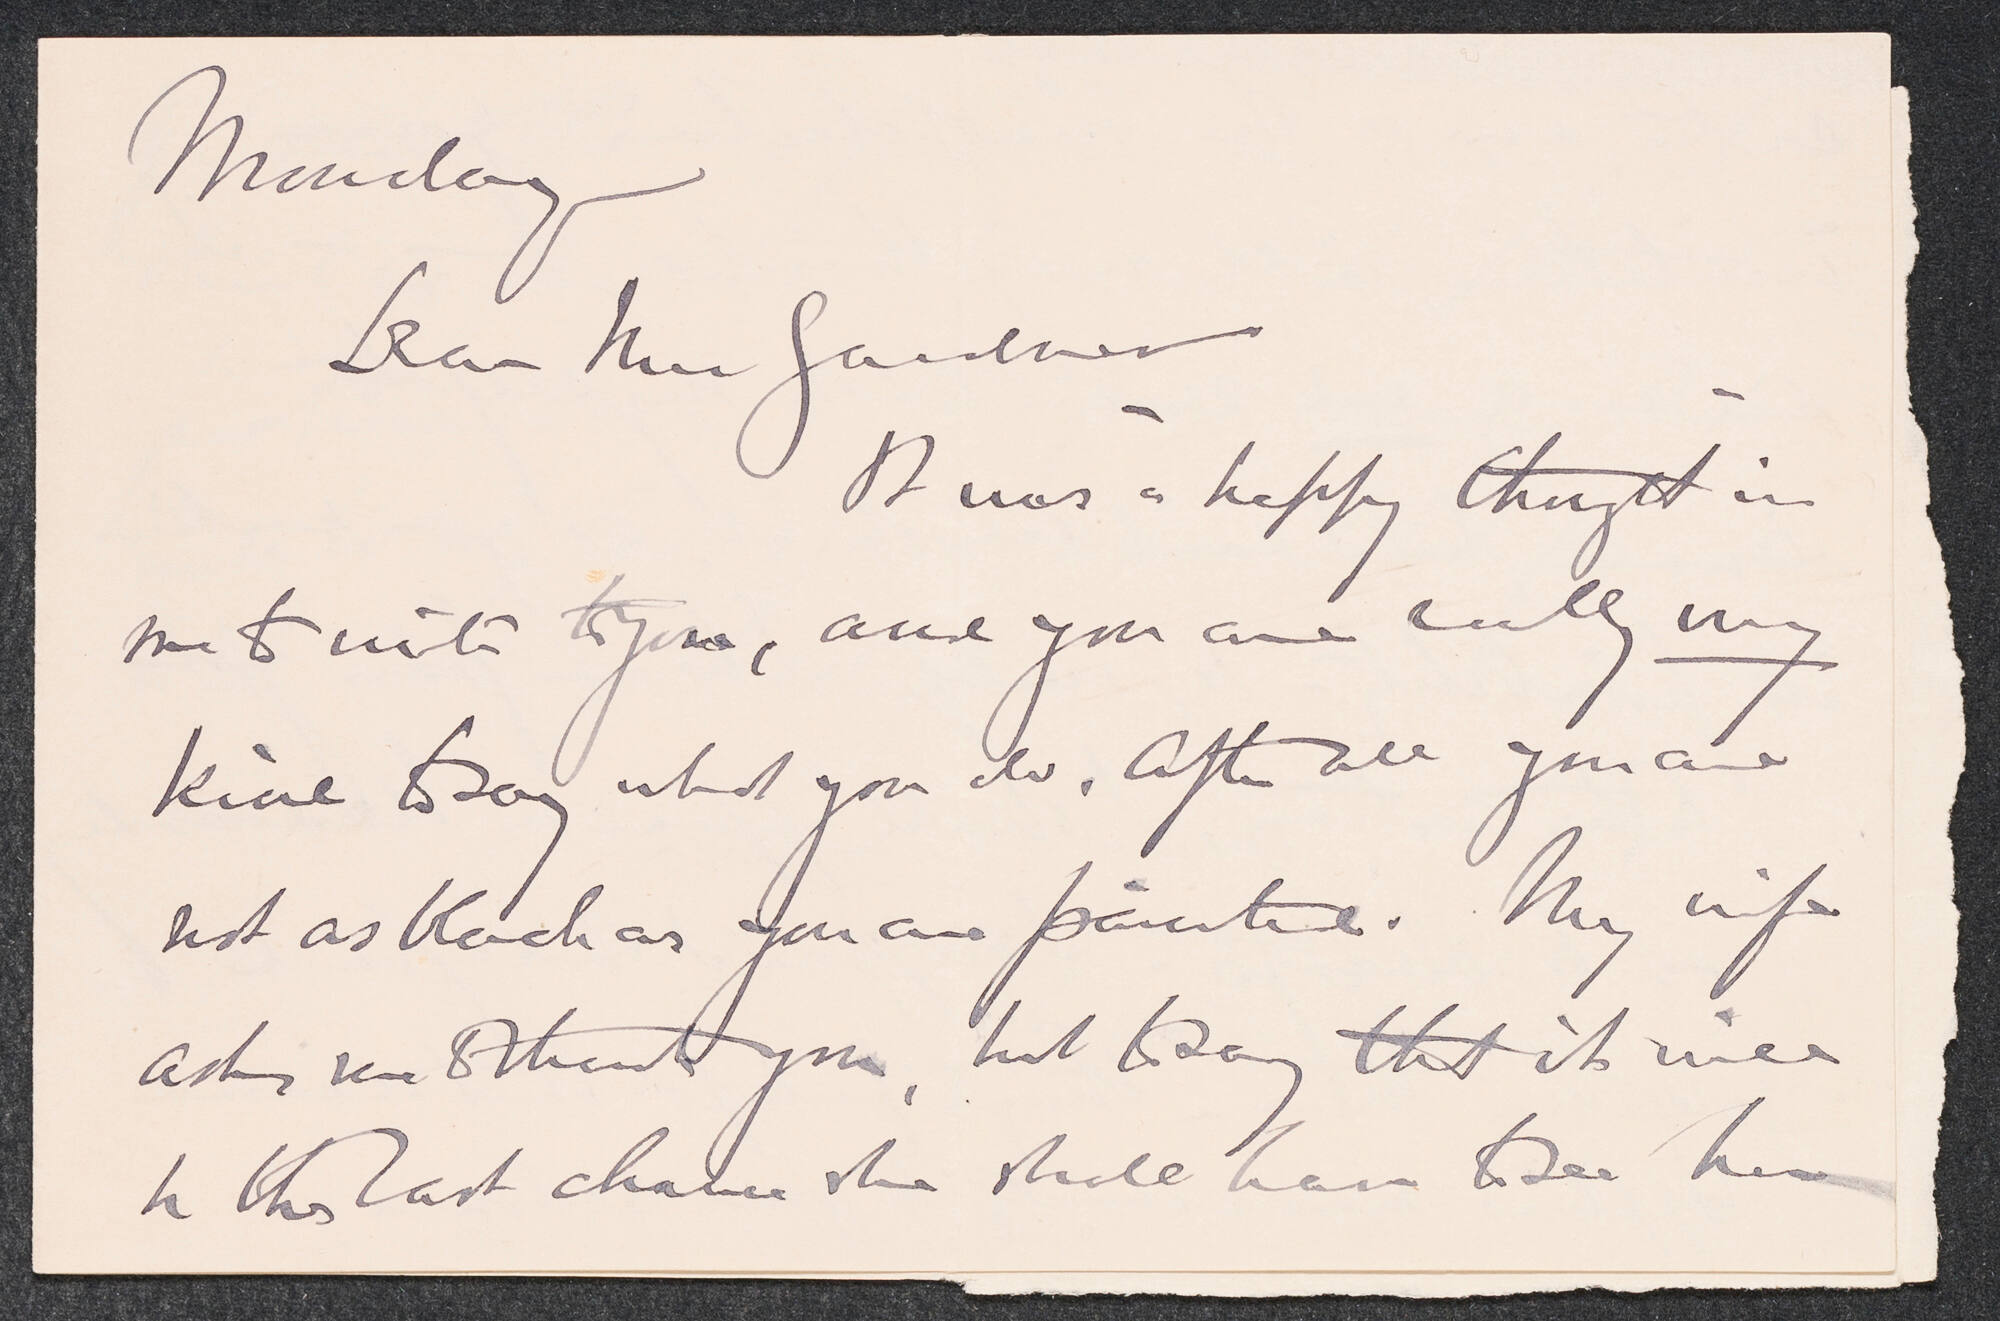 Monday
Dear Mrs Gardner
It was a happy thought in
me to write to you, and you are really very
kind to say what you do. After all you are
not as black as you are painted. My wife
asks me to thank you, but to say that it will
be the last chance she shall have to see her